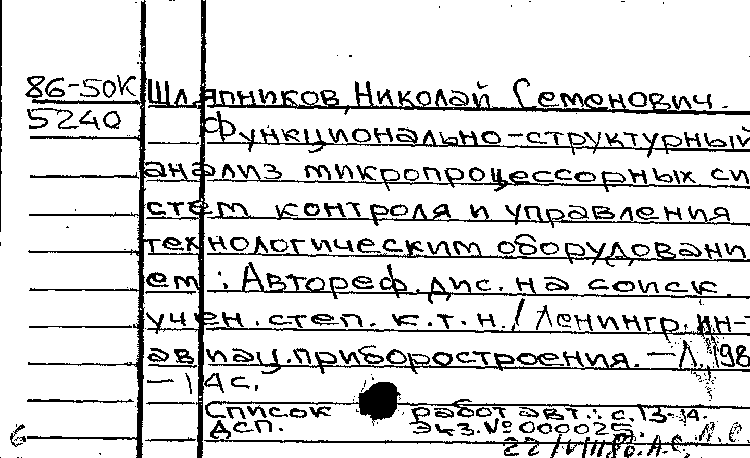 86-50К Шляпников, Николай Семенович.
5240 Функционально-структурный
анализ микропроцессорных си
стем контроля и управления
технологическим оборудовани
ем : Автореф. дис. на соиск.
учен. степ. к.т.н. / Ленингр. ин-т
авиац. приборостроения. — Л., 198
— 14 с.
Список работ авт.: с. 13-14.
ДСП. Экз. № 000025.
22/VIII 86. А.С. Л.С.
6